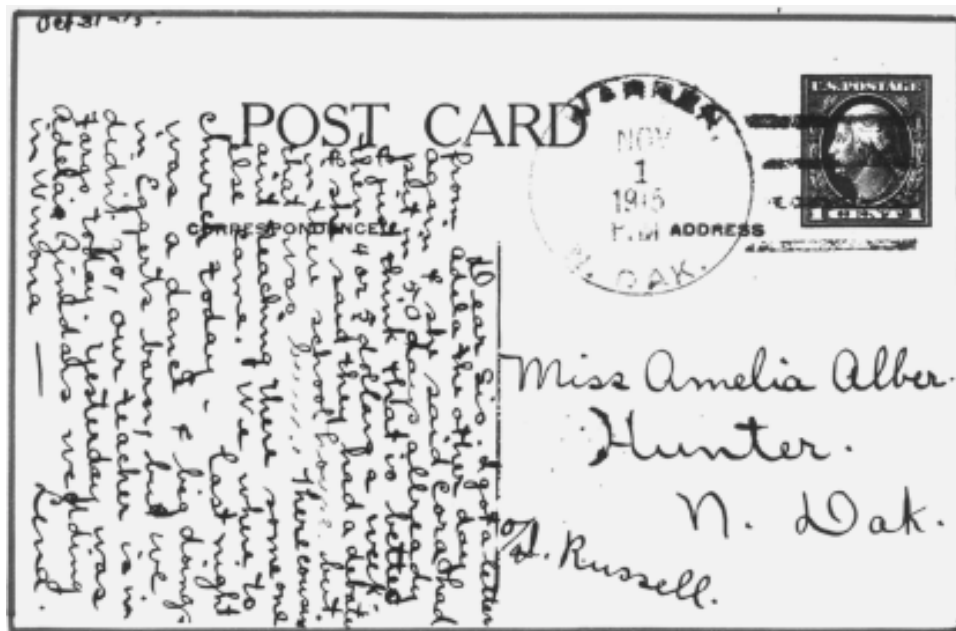 Oct 31-15.
POST CARD
CORRESPONDENCE
ADDRESS
WARREN,
NOV
1
1915
P.M
N. DAK.
U.S. POSTAGE
1 CENT 1
Dear Sis. I got a letter
from Adela the other day
again & she said Cora had
split 40 days already
I think that is better
then 4 or 5 dollars a week.
& she said they had a debate
in there school house but
that was There cousin
aint teaching there some one
else came. We where to
church today. Last night
was a dance & big doings
in Eggerts barn, but we
didn't go, our teacher is in
Fargo today. Yesterday was
Adela wedding
in Winona —
Lend.
Miss Amelia Alber.
Hunter.
N. Dak.
c/o
Russell.